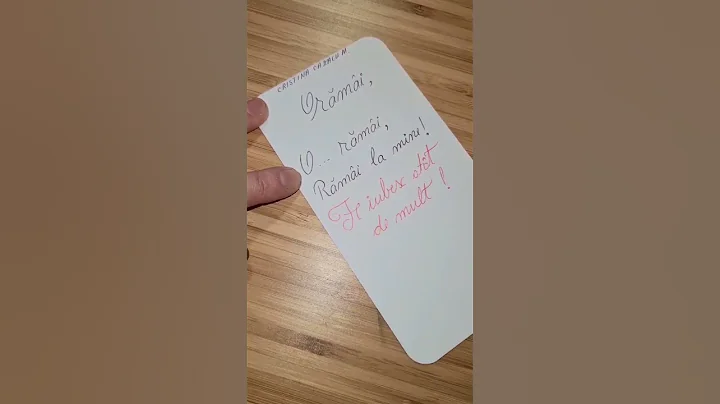 CRISTINA
Orămâi,
O... rămâi,
Rămâi la mine!
Te iubesc atât
de mult!